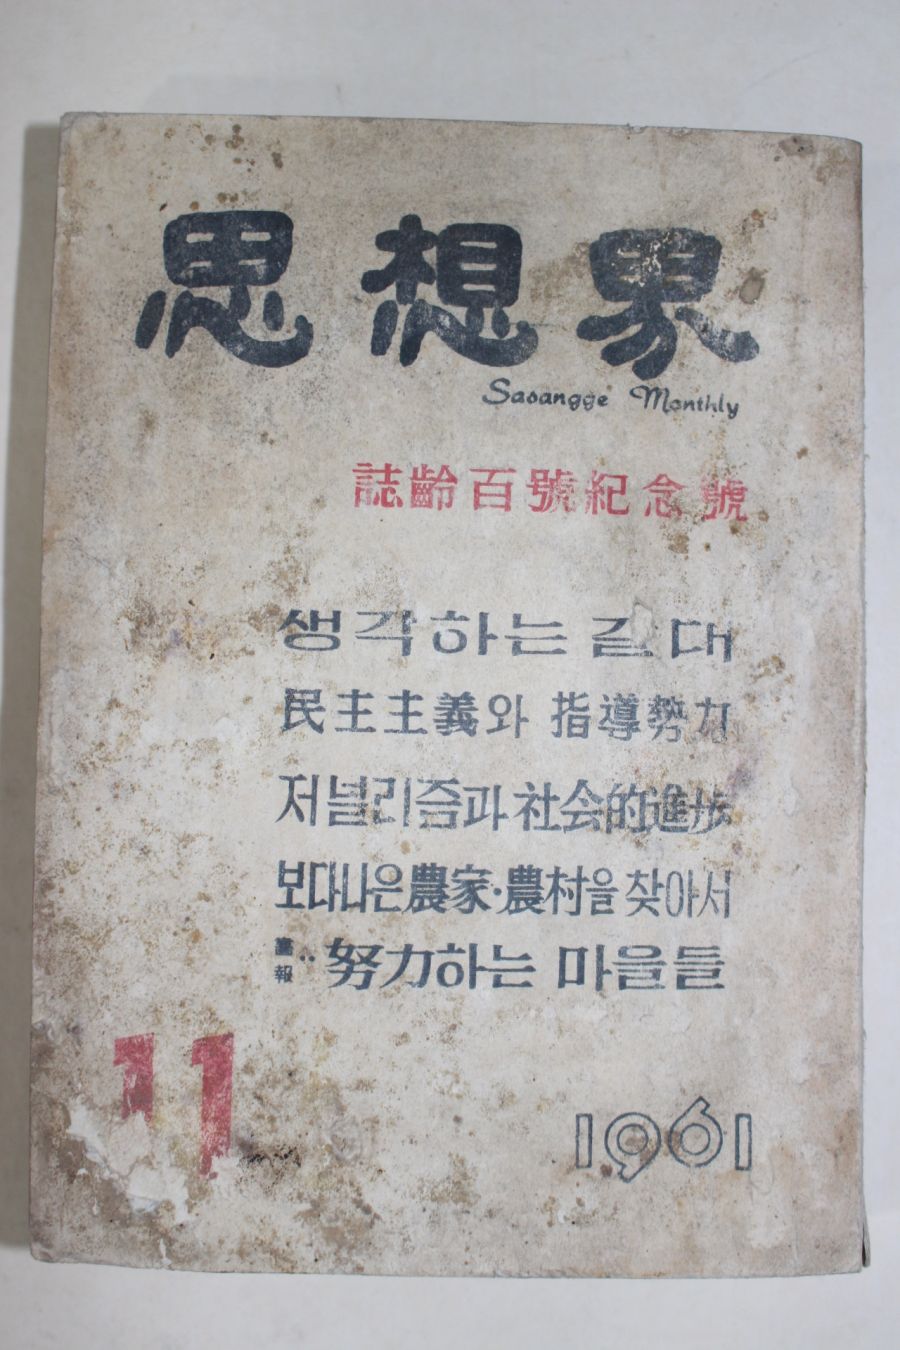 思想界
Sasangge Monthly
誌齡百號紀念號
생각하는 갈대
民主主義와 指導勢力
저널리즘과 社会的進步
보다나은 農家·農村을 찾아서
畵報‥努力하는 마을들
11
1961